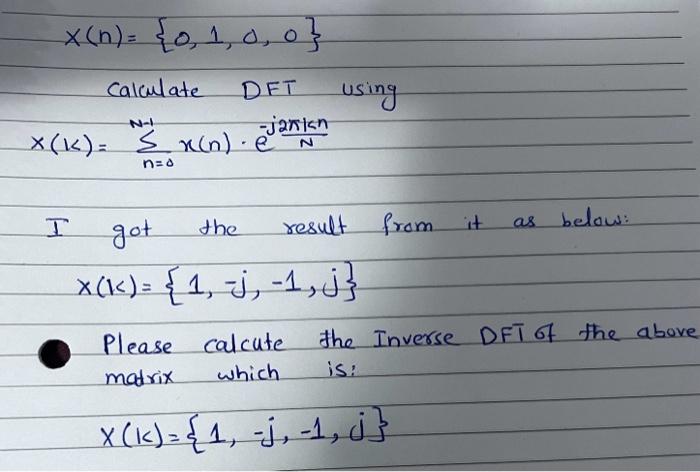 x(n)= {0, 1, 0, 0}
Calculate DFT using
X(k)= N-1 Σ n=0 x(n) · e^-j2πkn/N
I got the result from it as below:
X(k)= {1, -j, -1, j}
Please calcute the Inverse DFT of the above
matrix which is:
X(k)={1, -j, -1, j}